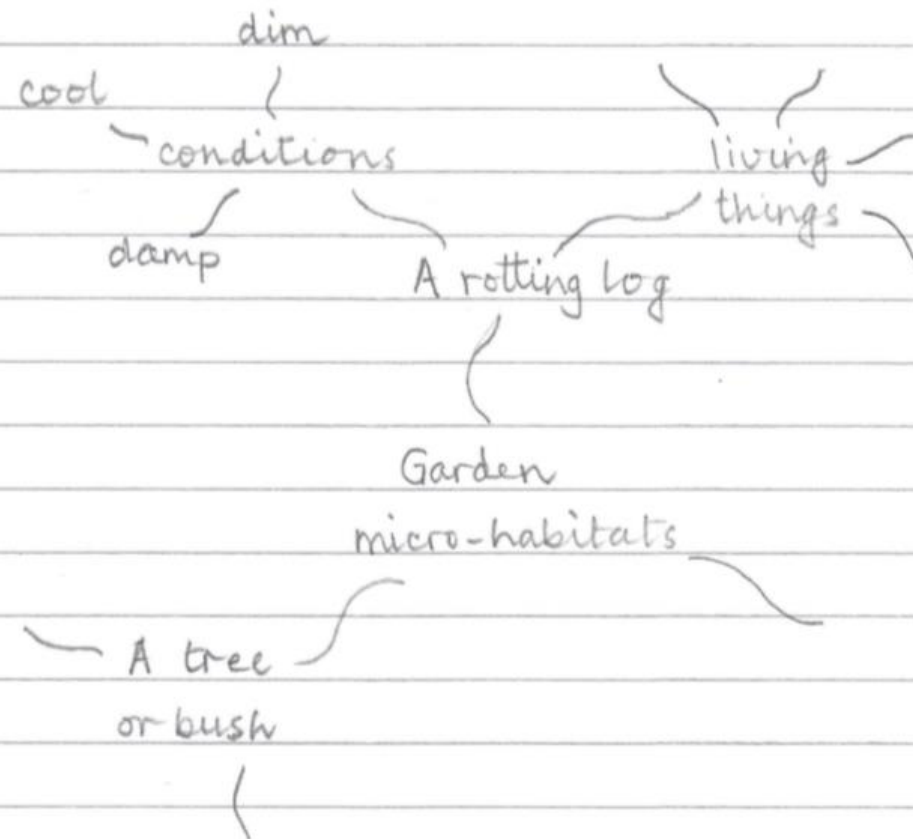 dim
cool
conditions
living
things
damp
A rotting log
Garden
micro-habitats
A tree
or bush